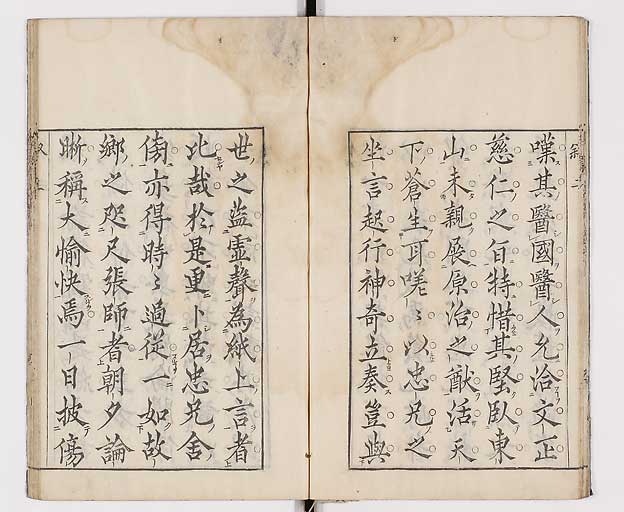 嘆其醫國醫人允洽文正
慈仁之旨特惜其堅臥東
山未親展原治之猷活天
下蒼生可嗟〻以忠兄之
坐言起行神奇立奏豈與
世之盜虛聲為紙上言者
比哉於是重卜居忠兄舍
側亦得時〻過從一如故
鄉之咫尺張師者朝夕論
晰稱大愉快焉一日披傷